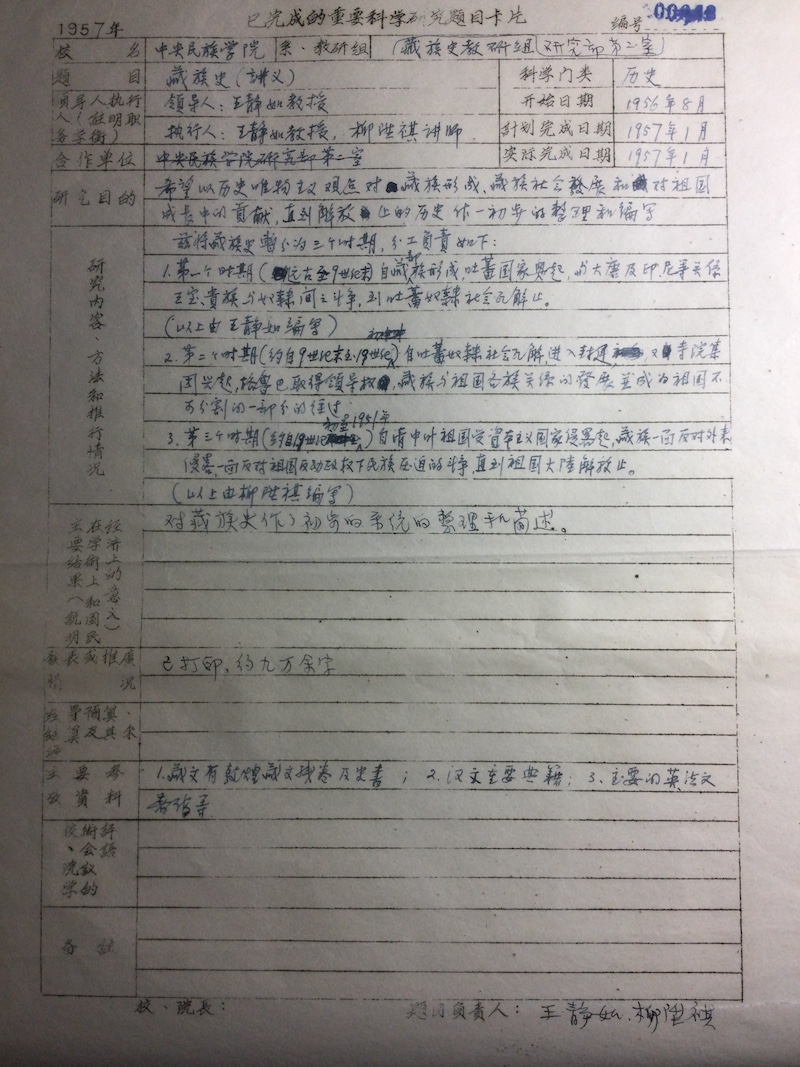 已完成的重要科学研究题目卡片
1957年
编号
校 名 中央民族学院 系、教研组 (藏族史教研组) 研究部第二室
题 目 藏族史(讲义) 科学门类 历史
负导人执行人(注明职务学衔)
领导人:王静如教授 开始日期 1956年8月
执行人:王静如教授,柳陞祺讲师 计划完成日期 1957年1月
合作单位 中央民族学院研究部第二室 实际完成日期 1957年1月
研究目的
希望以历史唯物主义观点对藏族形成、藏族社会發展和对祖国
成长中的贡献,直到解放止的历史作一初步的整理和编写
研究内容、方法和推行情况
兹将藏族史暫分为三个时期,分工负责如下:
1.第一个时期(远古至9世纪末)自藏族部形成,吐蕃国家興起,与大唐及印、尼等关係
王室、貴族与奴隸间之斗争,到吐蕃奴隸社会瓦解止。
(以上由王静如编写)
2.第二个时期(约自9世纪末至19世纪初)自吐蕃奴隸社会瓦解进入封建,及寺院集
团兴起,格魯巴取得領导权,藏族与祖国各族关係的發展並成为祖国不
可分割的一部分的经过
3.第三个时期(约自19世纪初至1951年)自清中叶祖国受资本主义国家侵畧起,藏族一面反对外来
侵畧,一面反对祖国反动政权下民族压迫的斗争,直到祖国大陸解放止。
(以上由柳陞祺编写)
主要结果(说明在学術上和国民经济上的意义)
对藏族史作了初步的系统的整理和简述。
發表或推廣情况
已打印,约九万余字
主要参攷資料
1.藏文有敦煌藏文残卷及史書;2.汉文主要典籍;3.主要的英法文
著作等
校、院学術会議的評
备註
校、院長: 题目负责人:王静如、柳陞祺